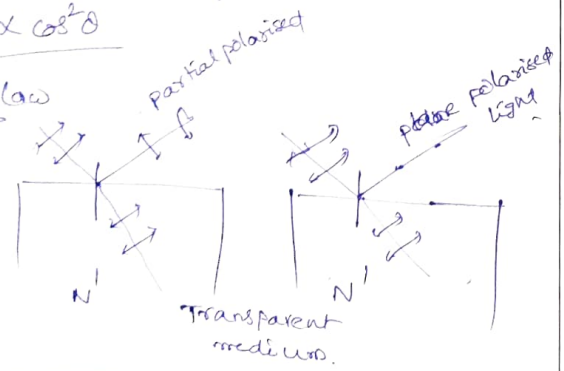 x cos²θ
law
partial polarised
plane polarised
light
N'
N'
Transparent
medium.